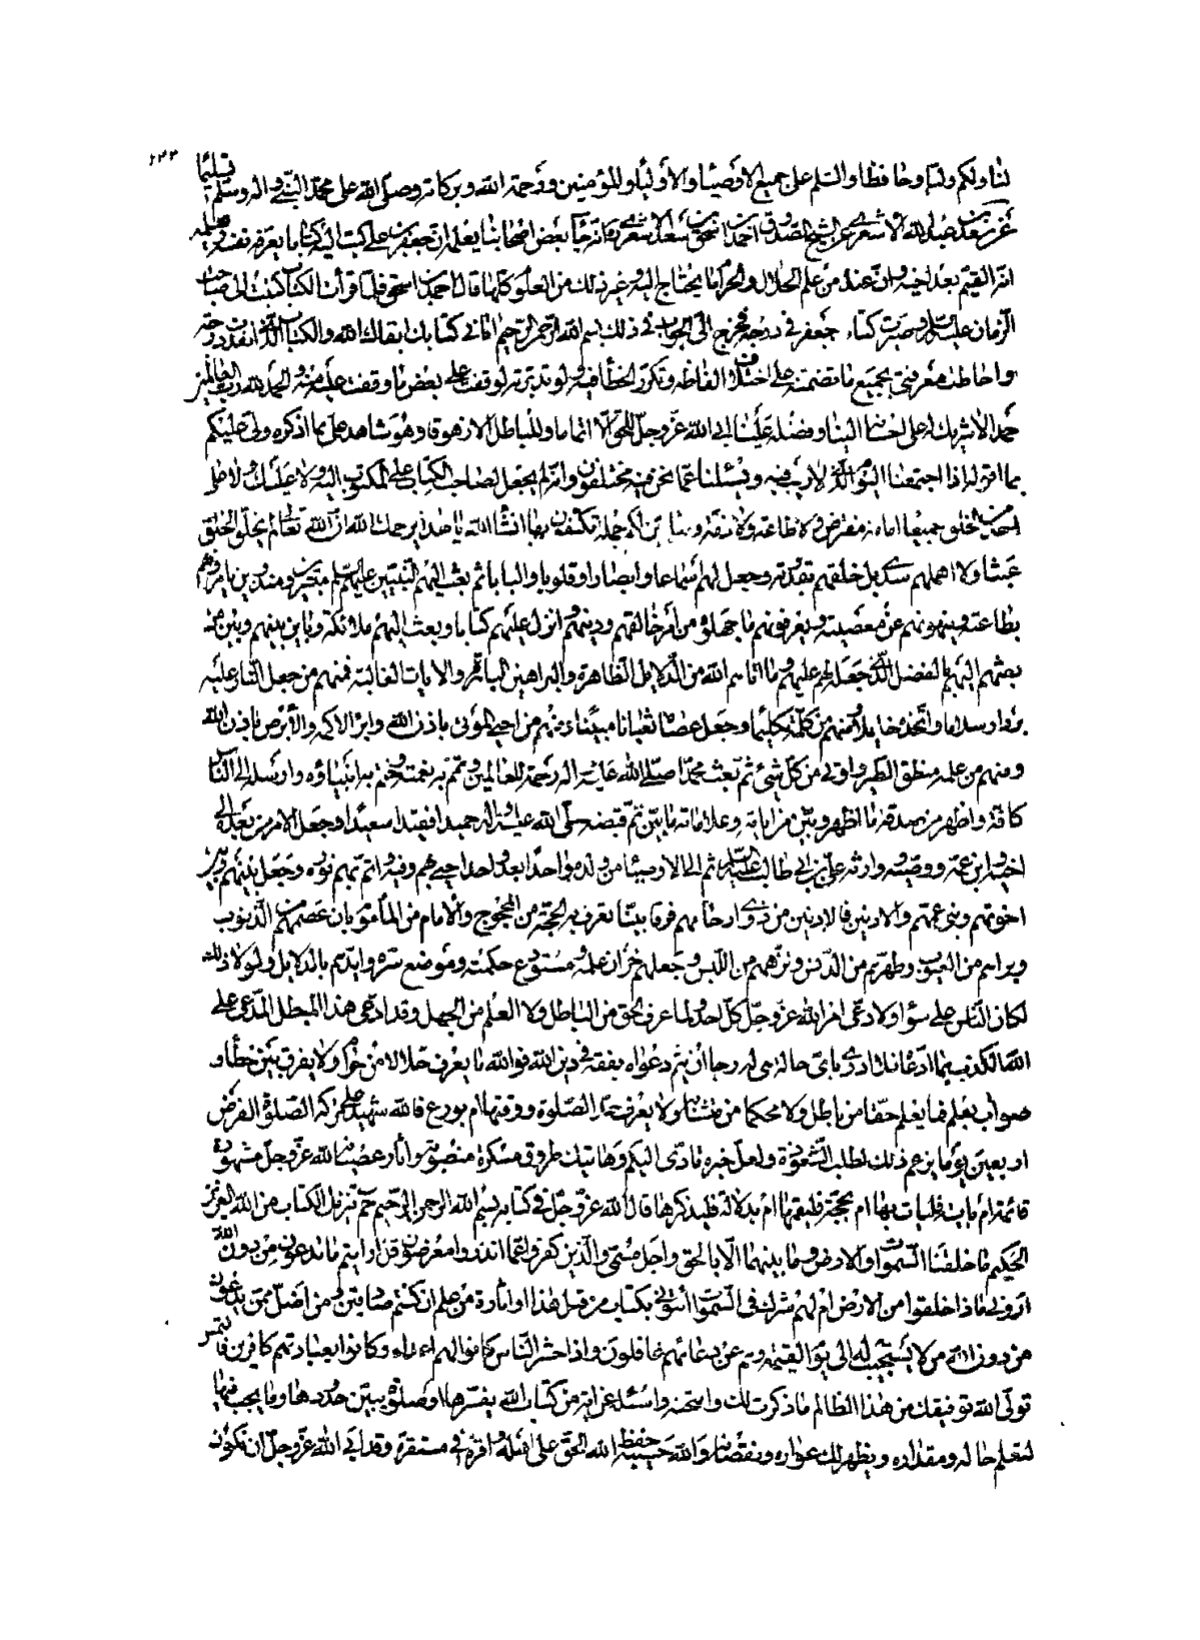 ١٢٣
لنا ولكم وليا وحافظا والسلم على جميع الاوصياء والاولياء والمؤمنين ورحمة الله وبركاته وصلى الله على محمد النبي واله وسلم تسليما
عن سعد بن عبد الله الاشعري عن الشيخ الصدوق احمد بن اسحق بن سعد الاشعري انه جاء بعض اصحابنا يعلمه ان جعفر بن علي كتب اليه كتابا يعرفه نفسه ويعلمه
انه القيم بعد اخيه وان عنده من علم الحلال والحرام ما يحتاج اليه وغير ذلك من العلوم كلها قال احمد بن اسحق فلما قرأت الكتاب كتبت الى صاحب
الزمان عليه السلم وصيرت كتاب جعفر في درجه فخرج الى الجواب في ذلك بسم الله الرحمن الرحيم اتاني كتابك ابقاك الله والكتاب الذي انفذت درجه
واحاطت معرفتي بجميع ما تضمنه على اختلاف الفاظه وتكرر الخطأ فيه ولو تدبرته لوقفت على بعض ما وقفت عليه منه والحمد لله رب العالمين
حمدا لا شريك له على احسانه الينا وفضله علينا ابى الله عز وجل للحق الا اتماما وللباطل الا زهوقا وهو شاهد على بما اذكره ولى عليكم
بما اقوله اذا اجتمعنا اليوم الذي لا ريب فيه ويسئلنا عما نحن فيه مختلفون وانه لم يجعل لصاحب الكتاب على المكتوب اليه ولا عليك ولا على
احد من الخلق جميعا امامة مفترضة ولا طاعة ولا ذمة وسابين لكم جملة تكتفون بها انشاء الله يا هذا يرحمك الله ان الله تعالى لم يخلق الخلق
عبثا ولا اهملهم سدى بل خلقهم بقدرته وجعل لهم اسماعا وابصارا وقلوبا والبابا ثم بعث اليهم النبيين عليهم السلم مبشرين ومنذرين يامرونهم
بطاعته وينهونهم عن معصيته ويعرفونهم ما جهلوه من امر خالقهم ودينهم وانزل عليهم كتابا وبعث اليهم ملائكة وباين بينهم وبين من
بعثهم اليهم بالفضل الذي جعله لهم عليهم وما اتاهم الله من الدلايل الظاهرة والبراهين الباهرة والايات الغالبة فمنهم من جعل النار عليه
بردا وسلاما واتخذه خليلا ومنهم من كلمه تكليما وجعل عصاه ثعبانا مبينا ومنهم من احيى الموتى باذن الله وابرا الاكمه والابرص باذن الله
ومنهم من علمه منطق الطير واوتي من كل شئ ثم بعث محمدا صلى الله عليه واله رحمة للعالمين وتمم به نعمته وختم به انبياؤه وارسله الى الناس
كافة واظهر من صدقه ما اظهر وبين من اياته وعلاماته ما بين ثم قبضه صلى الله عليه واله حميدا فقيدا سعيدا وجعل الامر من بعده الى
اخيه وابن عمه ووصيه ووارثه علي بن ابي طالب عليه السلم ثم الى الاوصياء من ولده واحدا بعد واحد احيى بهم دينه واتم بهم نوره وجعل بينهم وبين
اخوتهم وبني عمهم والادنين فالادنين من ذوي ارحامهم فرقا بينا يعرف به الحجة من المحجوج والامام من المأموم بان عصمهم من الذنوب
وبراهم من العيوب وطهرهم من الدنس ونزههم من اللبس وجعلهم خزان علمه ومستودع حكمته وموضع سره وايدهم بالدلايل ولولا ذلك
لكان الناس على سواء ولادعى امر الله عز وجل كل احد ولما عرف الحق من الباطل ولا العلم من الجهل وقد ادعى هذا المبطل المدعي على
الله الكذب بما ادعاه فلا ادري باي حالة هي له رجا ان يتم دعواه بفقه في دين الله فوالله ما يعرف حلالا من حرام ولا يفرق بين خطأ و
صواب ام بعلم فما يعلم حقا من باطل ولا محكما من متشابه ولا يعرف حد الصلوة ووقتها ام بورع فالله شهيد على تركه الصلوة الفرض
اربعين يوما يزعم ذلك لطلب الشعوذة ولعل خبره تادى اليكم وهاتيك ظروف مسكره منصوبة واثار عصيانه لله عز وجل مشهورة
قائمة ام باية فليات بها ام بحجة فليقمها ام بدلالة فليذكرها قال الله عز وجل في كتابه بسم الله الرحمن الرحيم حم تنزيل الكتاب من الله العزيز
الحكيم ما خلقنا السموات والارض وما بينهما الا بالحق واجل مسمى والذين كفروا عما انذروا معرضون قل ارايتم ما تدعون من دون الله
اروني ماذا خلقوا من الارض ام لهم شرك في السموات ائتوني بكتاب من قبل هذا او اثارة من علم ان كنتم صادقين ومن اضل ممن يدعوا
من دون الله من لا يستجيب له الى يوم القيمة وهم عن دعائهم غافلون واذا حشر الناس كانوا لهم اعداء وكانوا بعبادتهم كافرين فالتمس
تولى الله توفيقك من هذا الظالم ما ذكرت لك وامتحنه واسئله عن اية من كتاب الله يفسرها او صلوة يبين حدودها وما يجب فيها
لتعلم حاله ومقداره ويظهر لك عواره ونقصانه والله حسيبه حفظ الله الحق على اهله واقره في مستقره وقد ابى الله عز وجل ان تكون